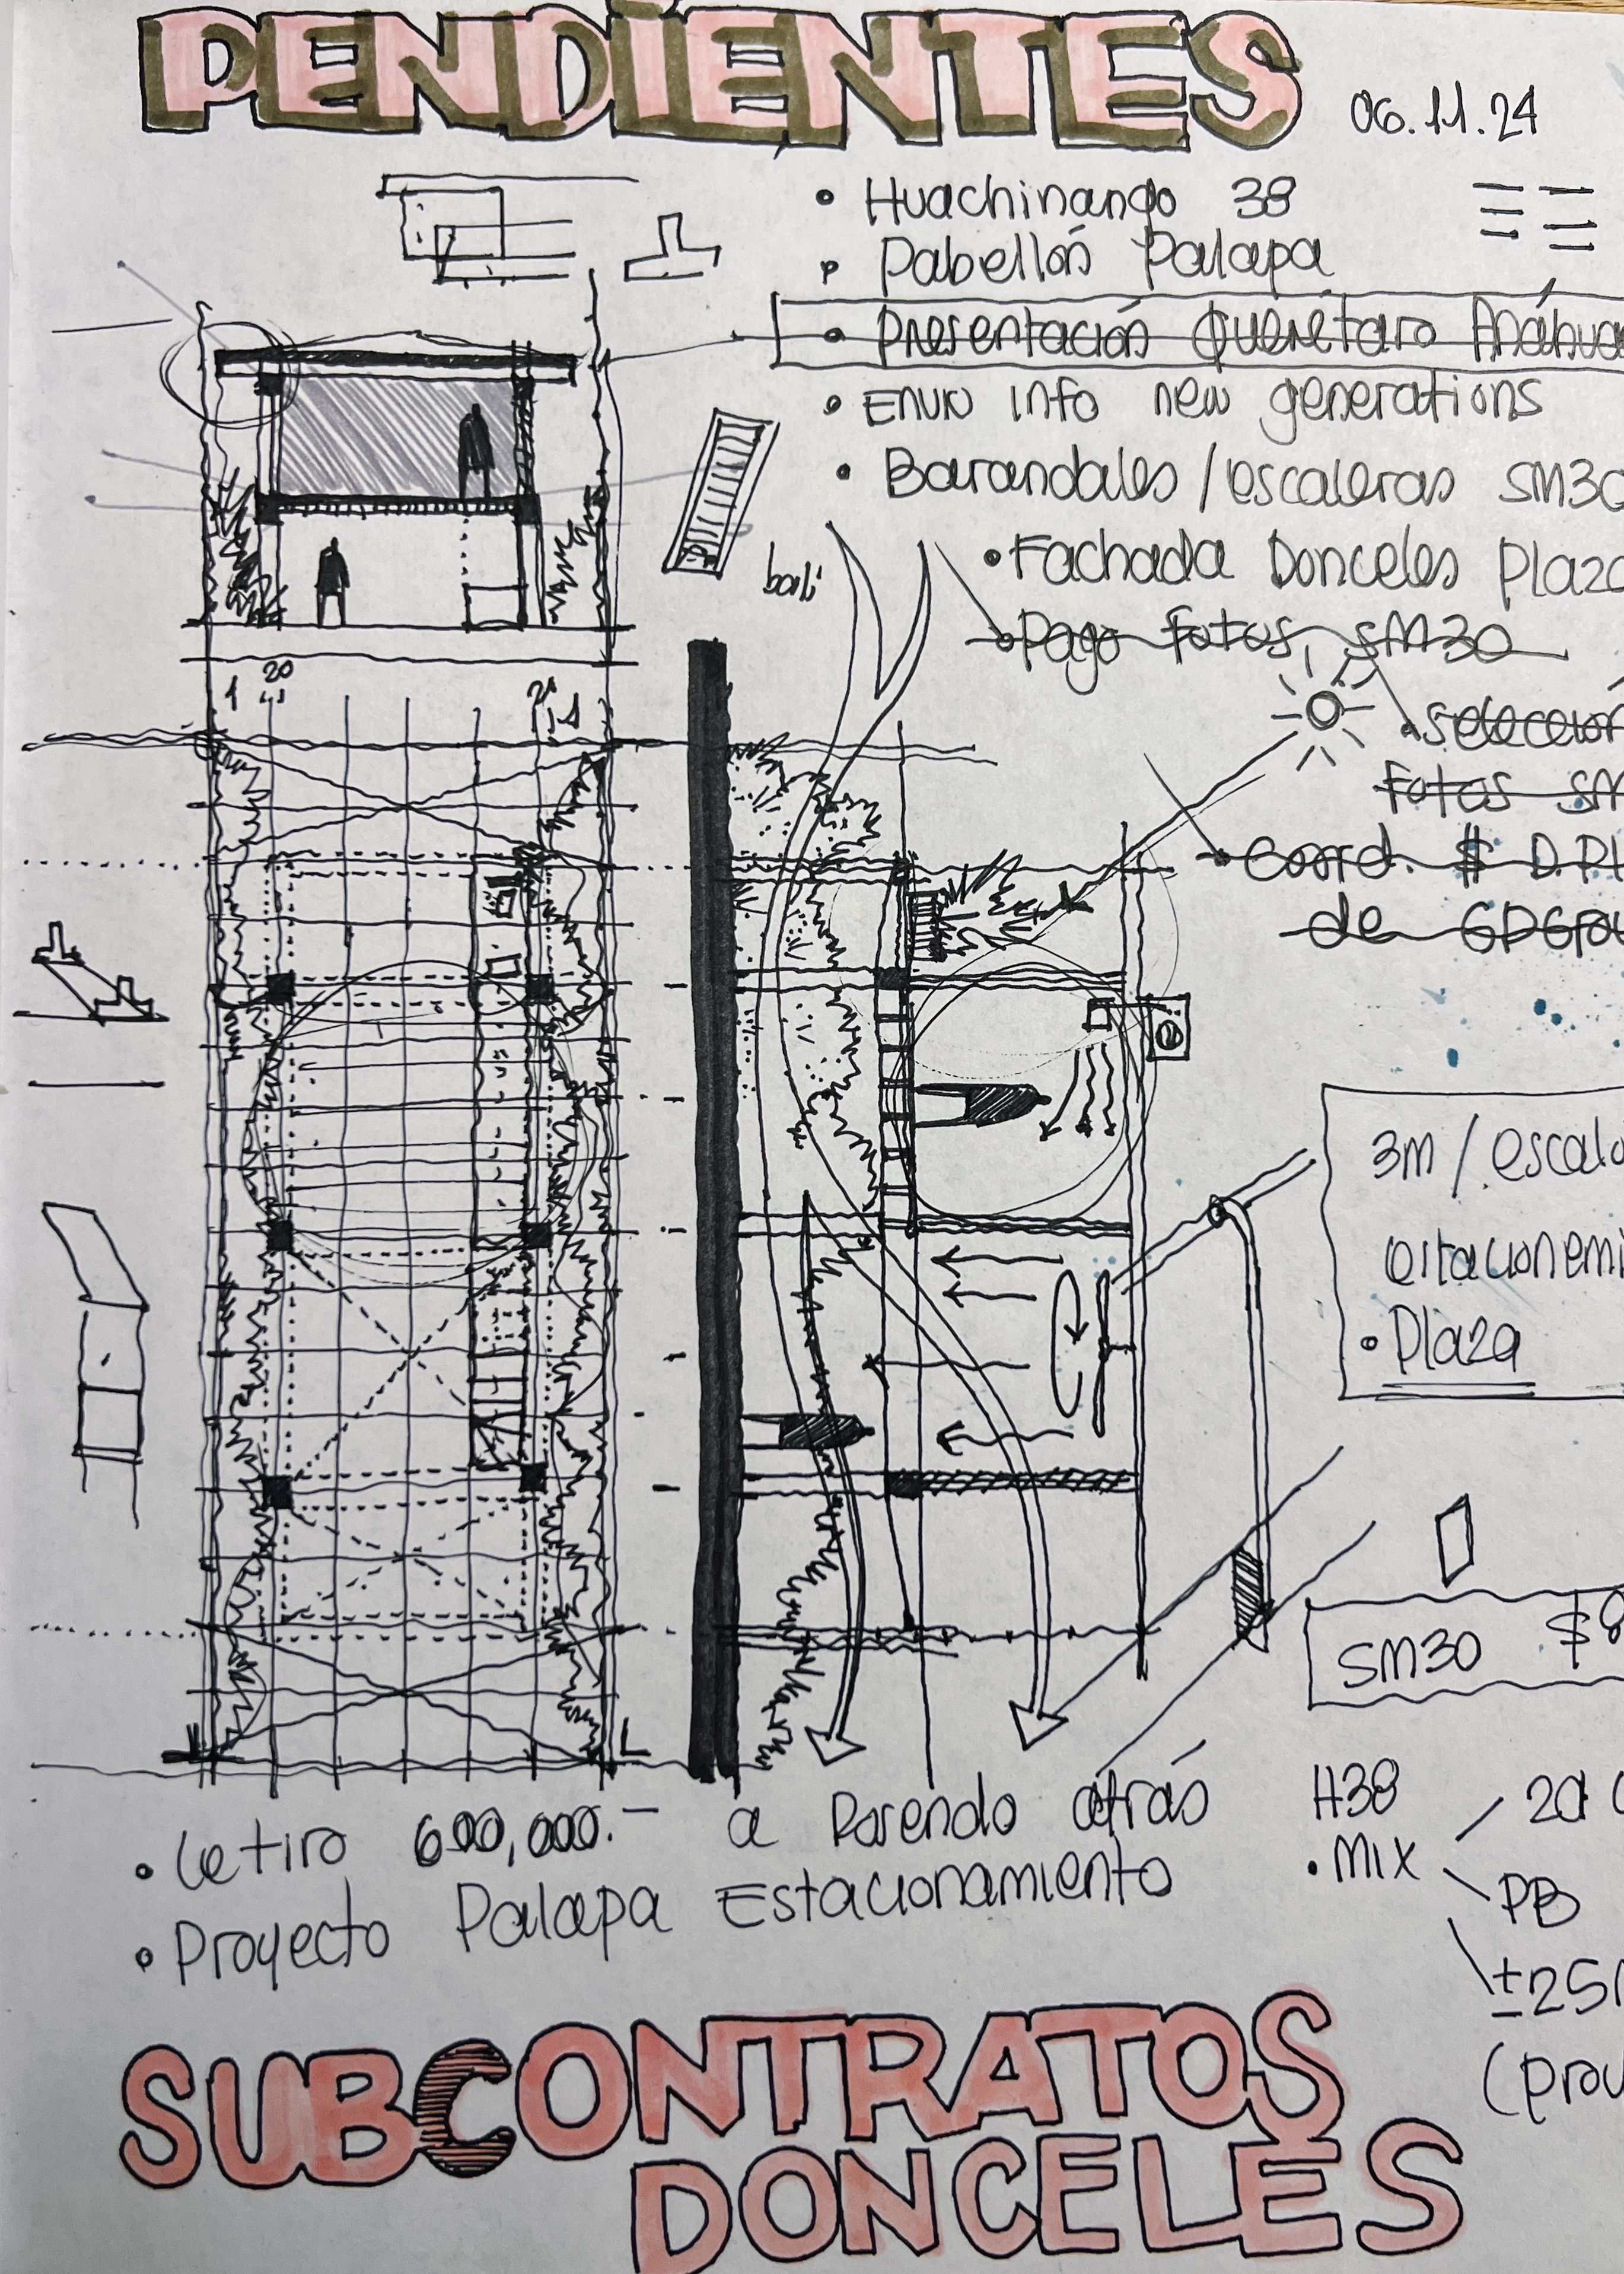 PENDIENTES
06.11.24
• Huachinango 38
• Pabellón Palapa
• Presentación Querétaro Anáhua
• Envio info new generations
• Barandales / escaleras SM30
• Fachada Donceles Plaza
bali
• Pago fotos, SM30
• selección
Fotos SM
1 20
• Coord. $ D.Pl
de GDGrou
3m / escal
estacionami
• Plaza
SM30 $8
H38
• MIX
2d
PB
±25
(prov
• retiro 600,000.- a Rosendo atrás
• Proyecto Palapa Estacionamiento
SUBCONTRATOS
DONCELES